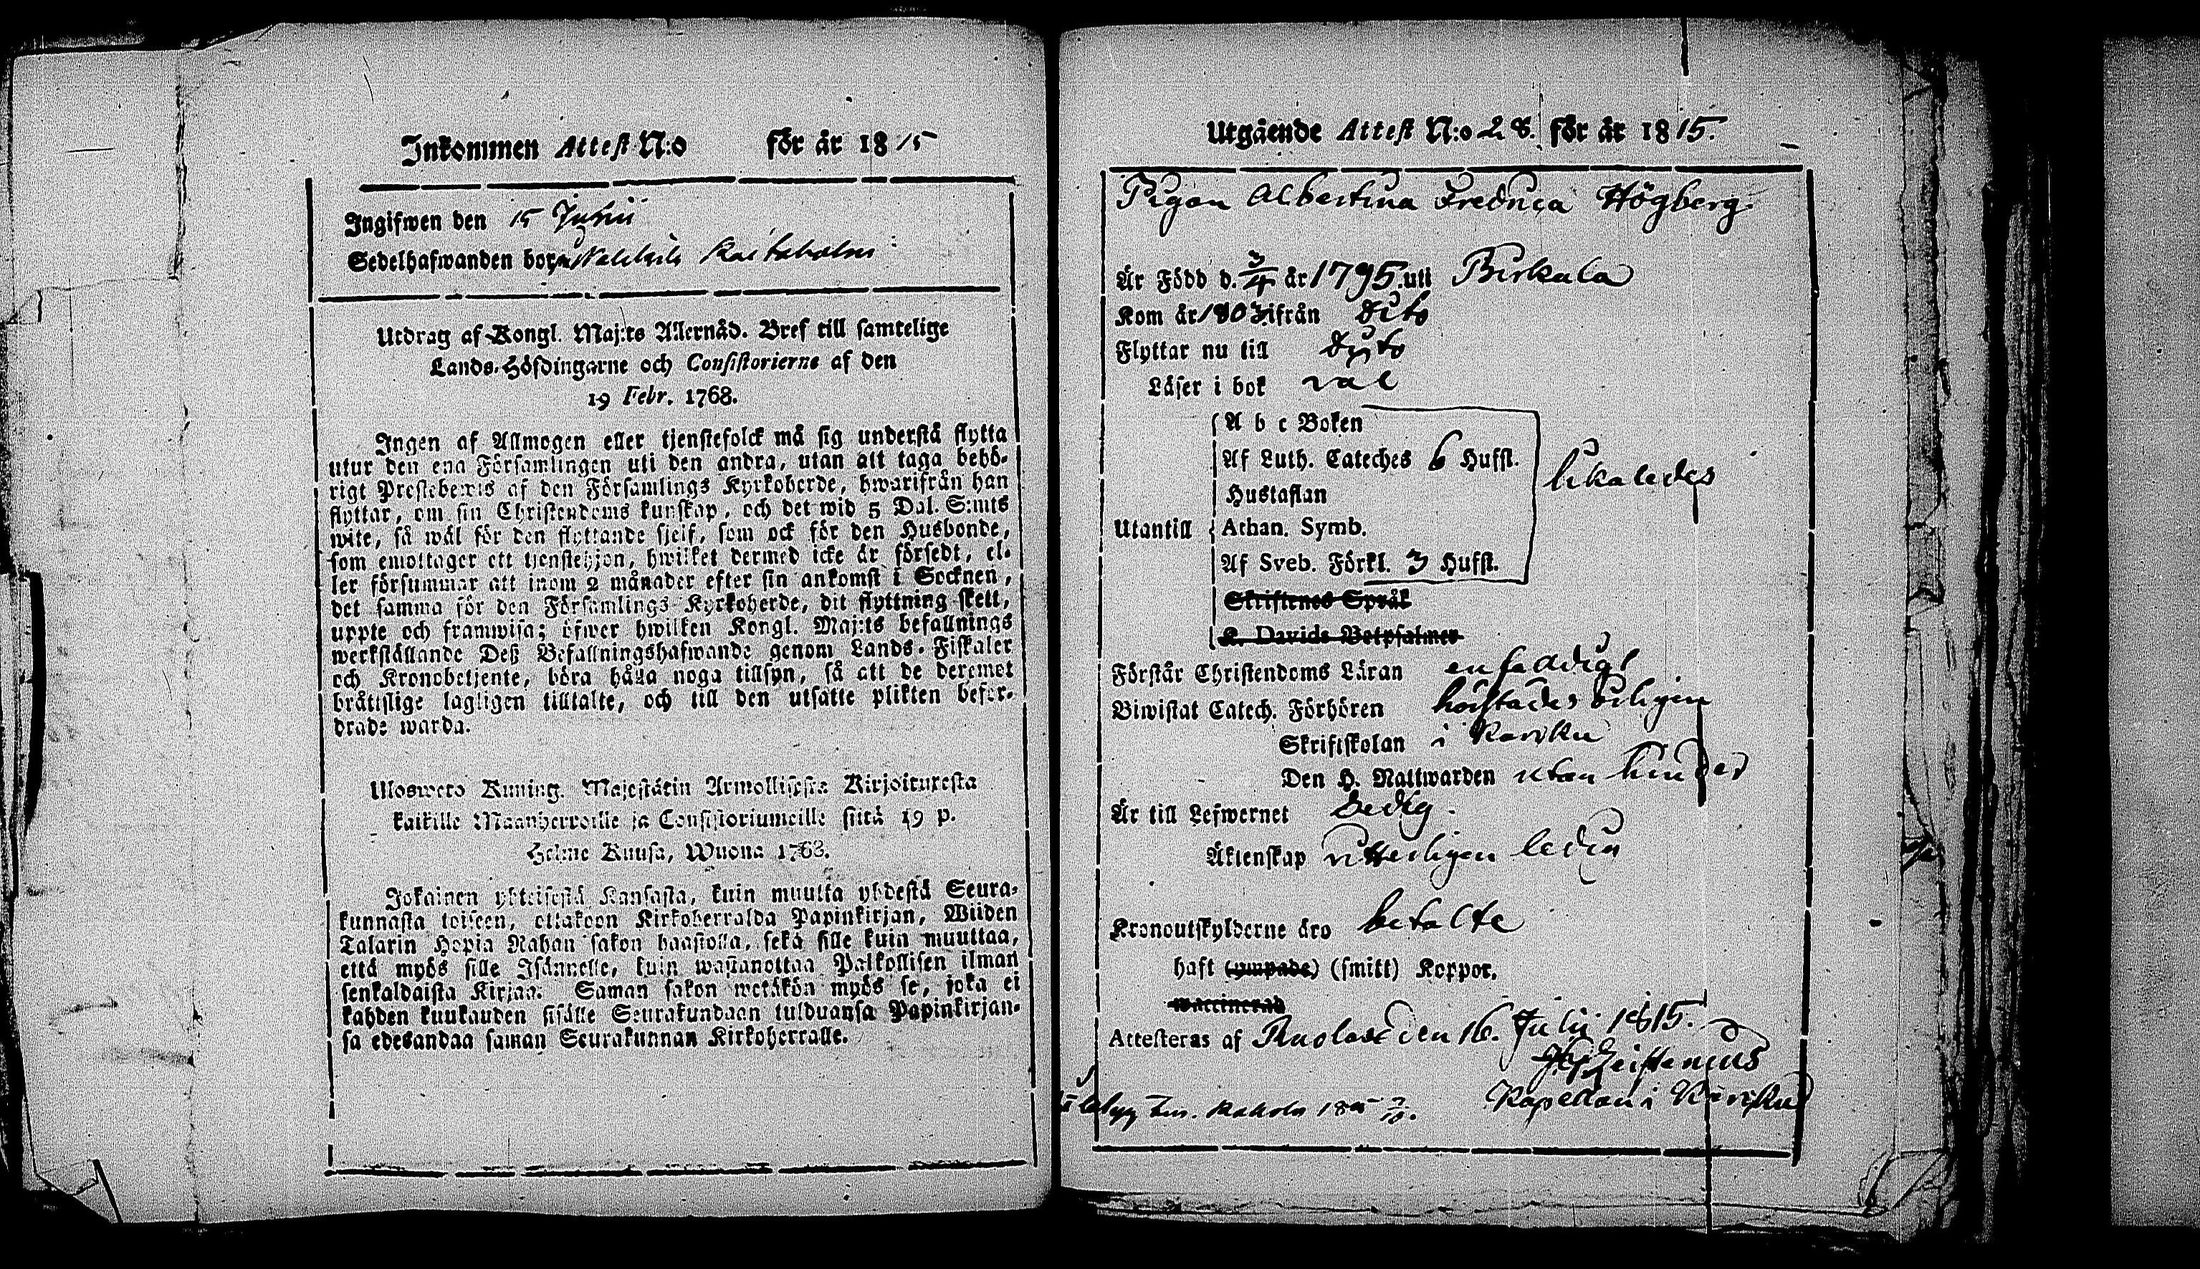 Inkommen Attest N:o för år 1815
Ingifwen den 15 Junii
Sedelhafwanden bor
Utdrag af Kongl. Maj:ts Allernåd. Bref till samtelige
Lands-Höfdingarne och Consistorierne af den
19 Febr. 1768.
Ingen af Allmogen eller tjenstefolck må sig understå flytta
utur den ena Församlingen uti den andra, utan att taga behö-
rigt Prestebewis af den Församlings Kyrkoherde, hwarifrån han
flyttar, om sin Christendoms kunskap, och det wid 5 Dal. S:mts
wite, så wäl för den flyttande sjelf, som ock för den Husbonde,
som emottager ett tjenstehjon, hwilket dermed icke är försedt, el-
ler försummar att inom 2 månader efter sin ankomst i Socknen,
det samma för den Församlings Kyrkoherde, dit flyttning skett,
uppte och framwisa; öfwer hwilken Kongl. Maj:ts befallnings
werkställande Deß Befallningshafwande genom Lands-Fiskaler
och Kronobetjente, böra hålla noga tillsyn, så att de deremot
bråttslige lagligen tilltalte, och till den utsatte plikten befor-
drade warda.
Uloswero Kuning. Majestätin Armollisesta Kirjoituxesta
kaikille Maanherroille ja Consistoriumeille siitä 19 p.
Helme Kuusa, Wuona 1768.
Jokainen yhteisestä Kansasta, kuin muutta yhdestä Seura-
kunnasta toiseen, ottakoon Kirkoherralda Papinkirjan, Wiiden
Talarin Hopia Rahan sakon haastolla, sekä sille kuin muuttaa,
että myös sille Isännelle, kuin wastanottaa Palkollisen ilman
senkaldaista Kirjaa. Saman sakon wetäkön myös se, joka ei
kahden kuukauden sisälle Seurakundaan tulduansa Papinkirjan-
sa edesandaa saman Seurakunnan Kirkoherralle.
Utgående Attest N:o 28. för år 1815.
Pigan Albertina Fredrica Högberg
Är Född d. 3/4 år 1795. uti Birkala
Kom år 1803 ifrån dito
Flyttar nu till dito
Läser i bok väl
A b c Boken
Af Luth. Cateches 6 Hufst.
Hustaflan
Utantill Athan. Symb.
Af Sveb. Förkl. 3 Hufst.
likaledes
Skriftenes Språk
K. Davids Botpsalmer
Förstår Christendoms Läran enfaldigt
Biwistat Catech. Förhören
Skriftskolan i Karcku
Den H. Nattwarden utan hinder
Är till Lefwernet Sedig.
Äktenskap ledig
Kronoutskylderne äro betalte
haft (ympade) (smitt) Koppor.
waccinerad
Attesteras af den 16. Julii 1815.
Kapellan i